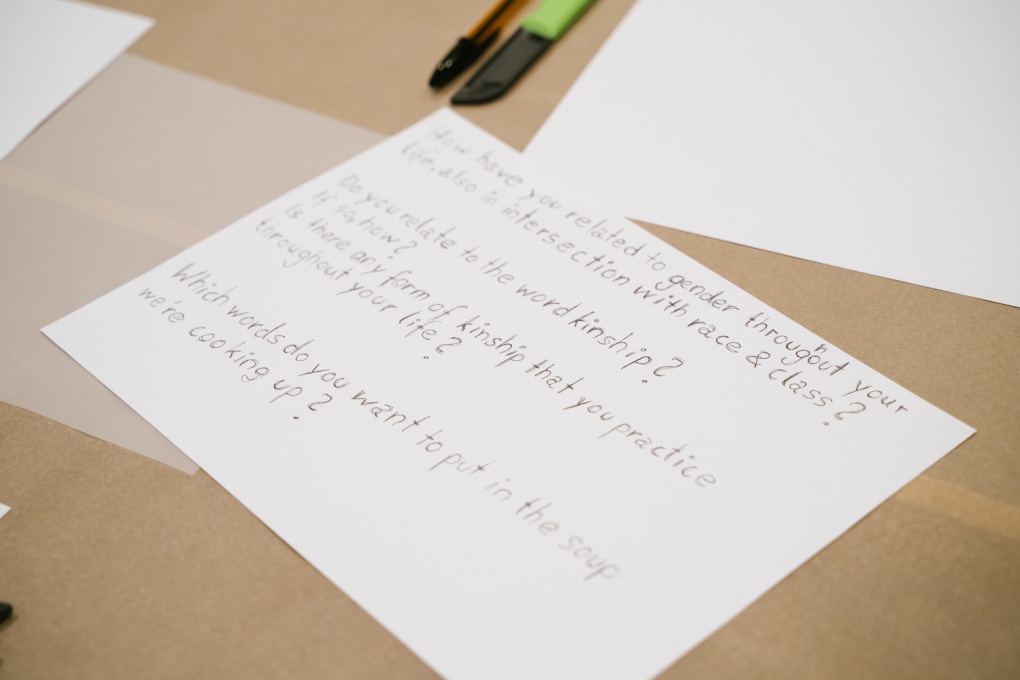 How have you related to gender throughout your
life, also in intersection with race & class?
Do you relate to the word kinship?
If so, how?
Is there any form of kinship that you practice
throughout your life?
Which words do you want to put in the soup
we're cooking up?